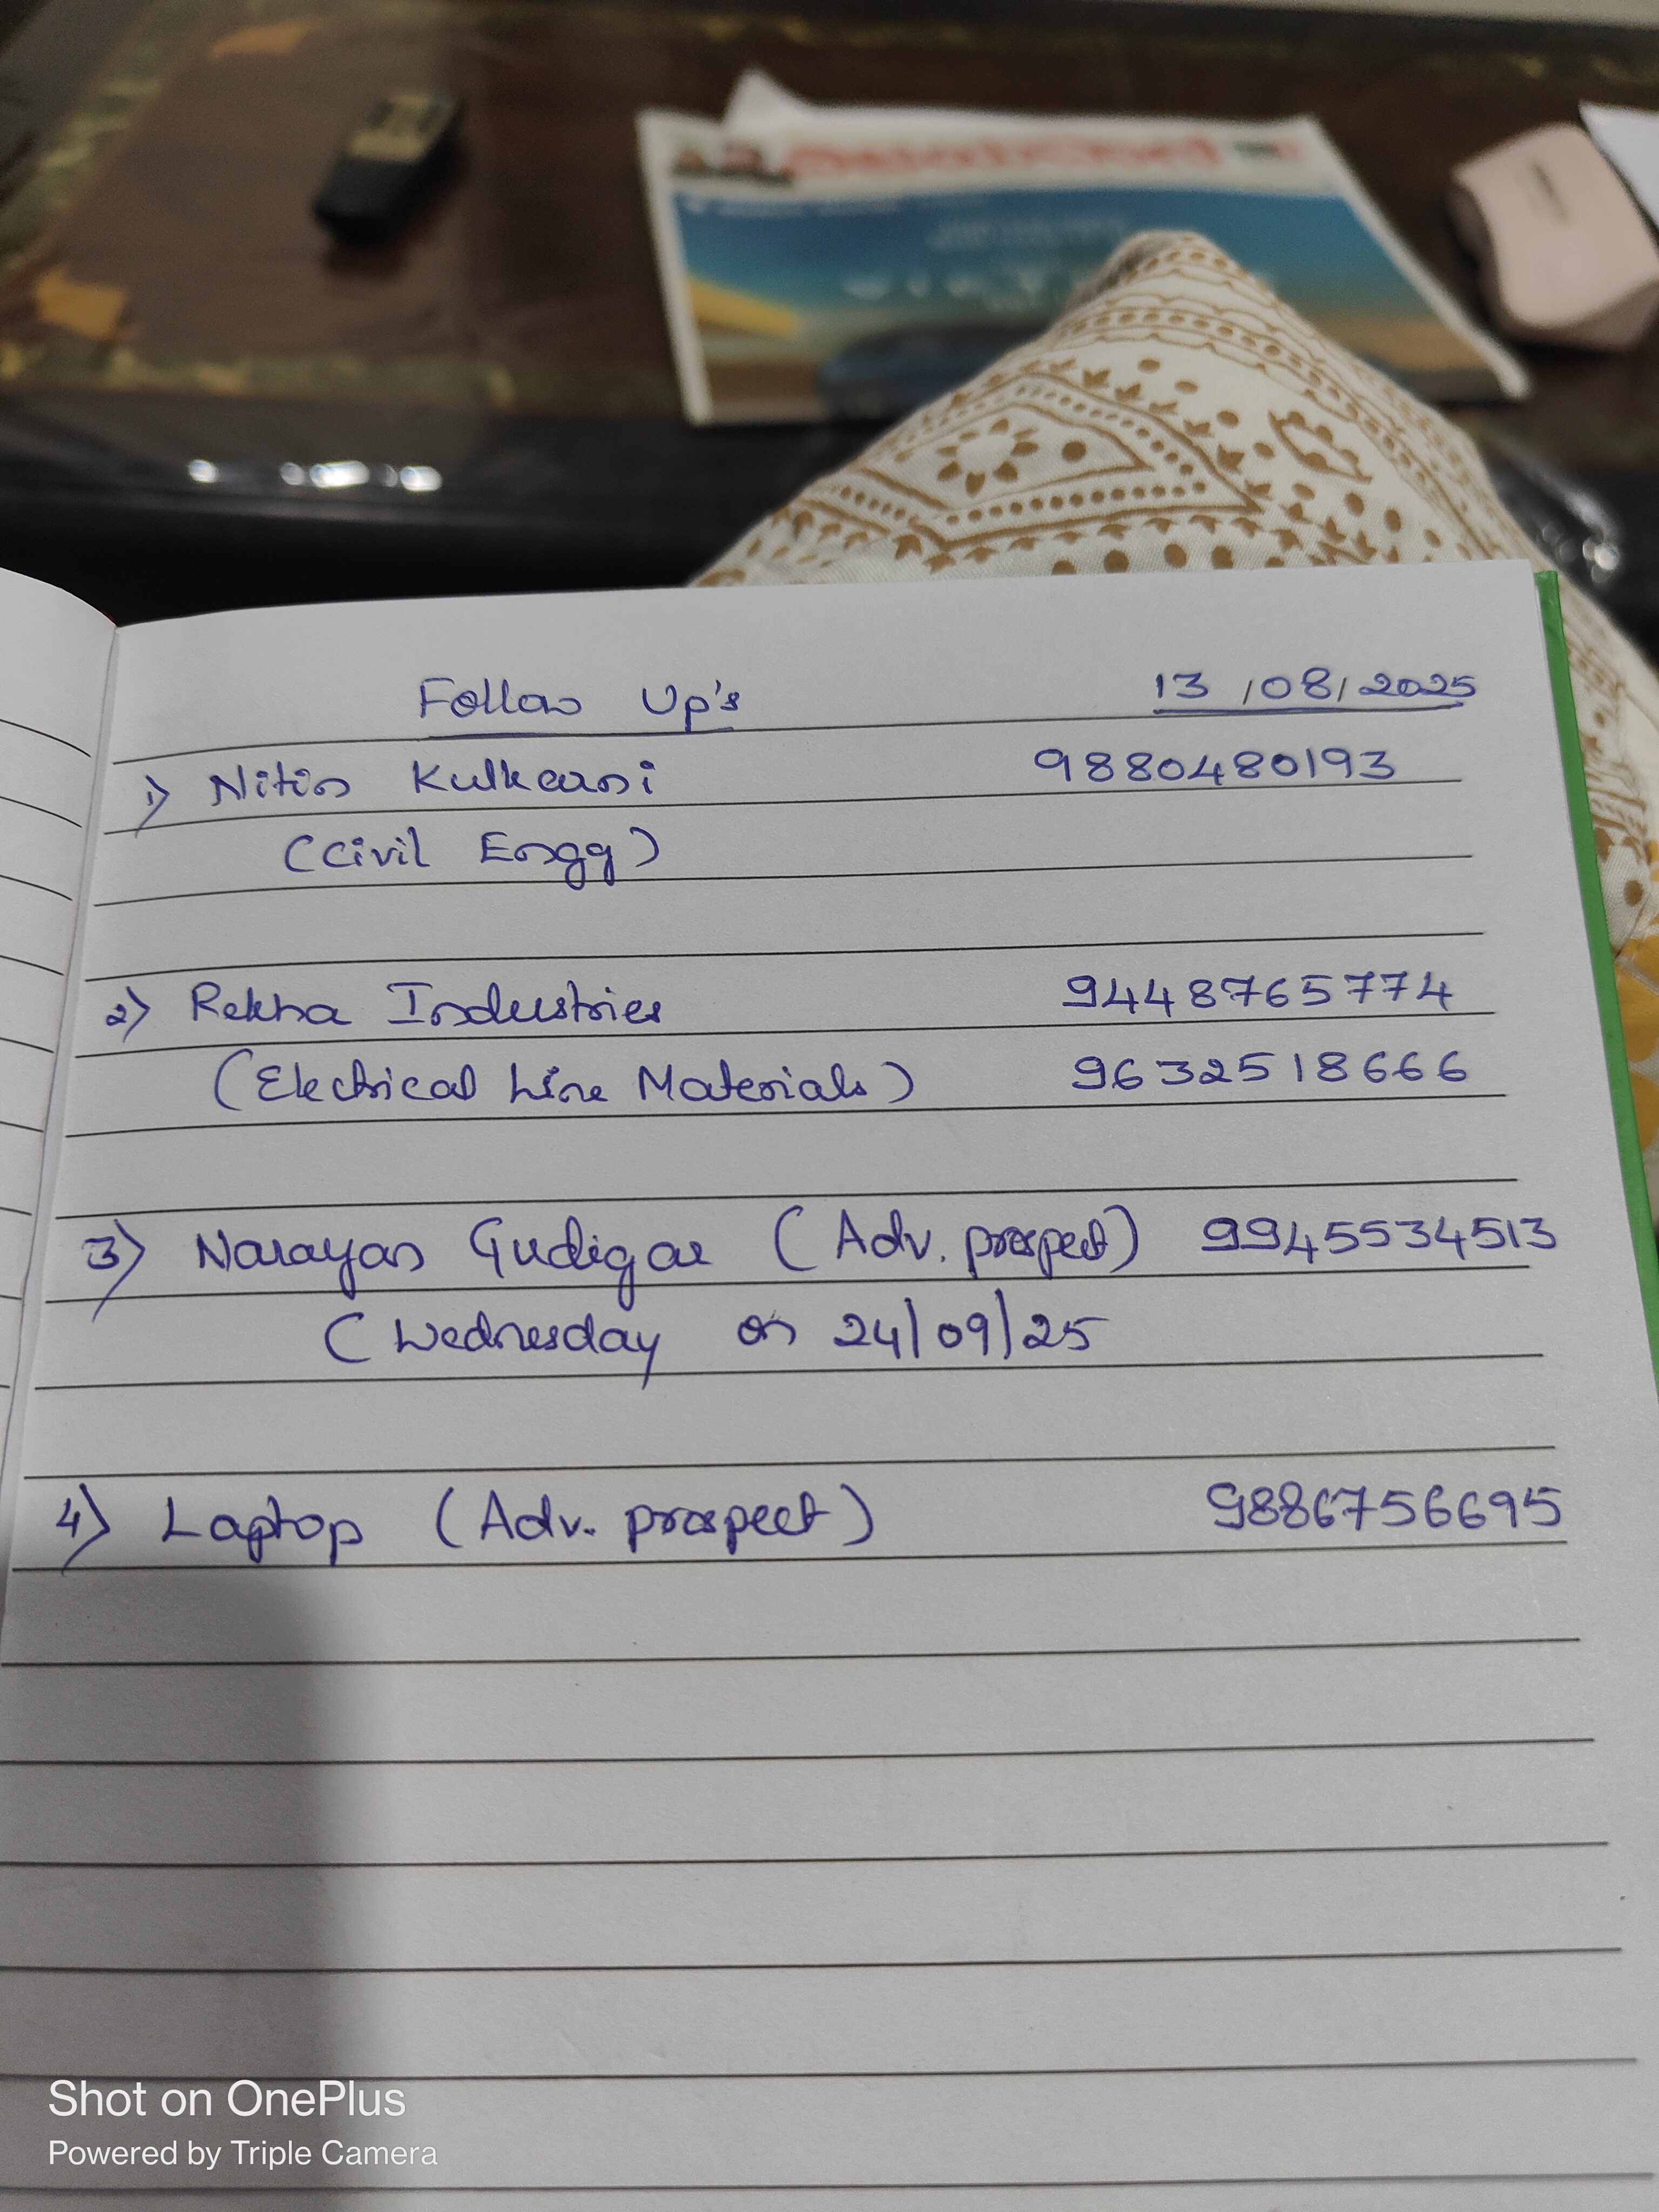 Follow Up's 13/08/2025
1) Nitin Kulkarni 9880480193
(Civil Engg)
2) Rekha Industries 9448765774
(Electrical Line Materials) 9632518666
3) Narayan Gudigar (Adv. prospect) 9945534513
(Wednesday on 24/09/25
4) Laptop (Adv. prospect) 9886756695
Shot on OnePlus
Powered by Triple Camera